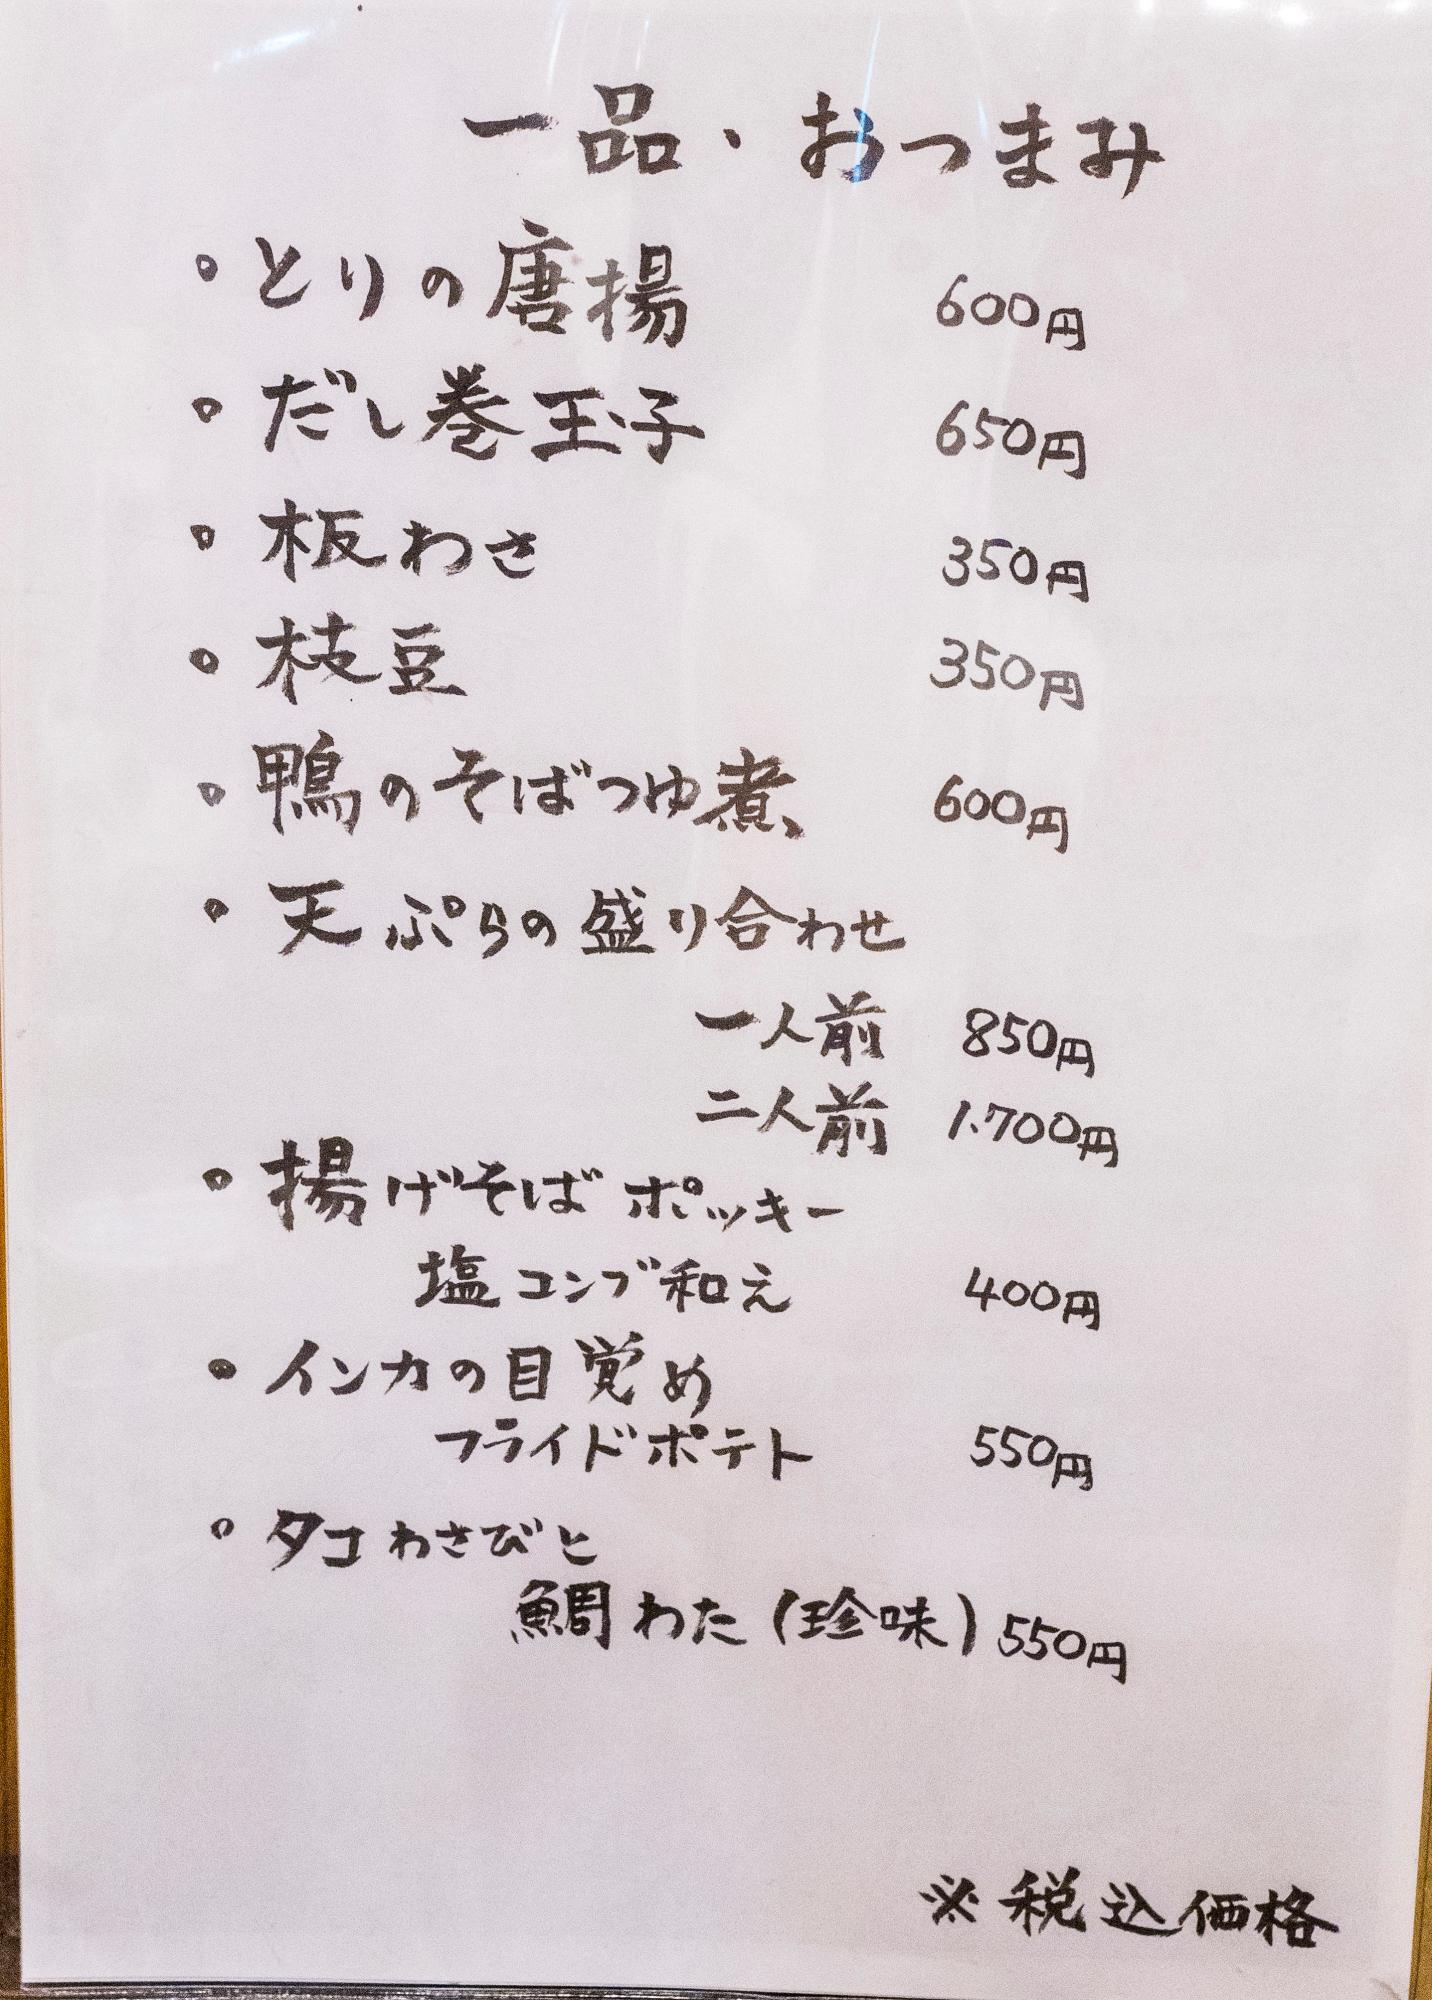 一品・おつまみ
。とりの唐揚 600円
。だし巻玉子 650円
。板わさ 350円
。枝豆 350円
。鴨のそばつゆ煮 600円
。天ぷらの盛り合わせ
一人前 850円
二人前 1.700円
。揚げそばポッキー
塩コンブ和え 400円
。インカの目覚め
フライドポテト 550円
。タコわさびと
鯛わた(珍味) 550円
※税込価格